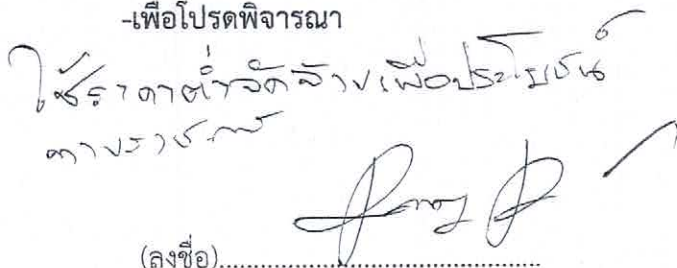 -เพื่อโปรดพิจารณา
ใช้ราคาต่ำจัดจ้างเพื่อประโยชน์
ทางราชการ
(ลงชื่อ)........................................................